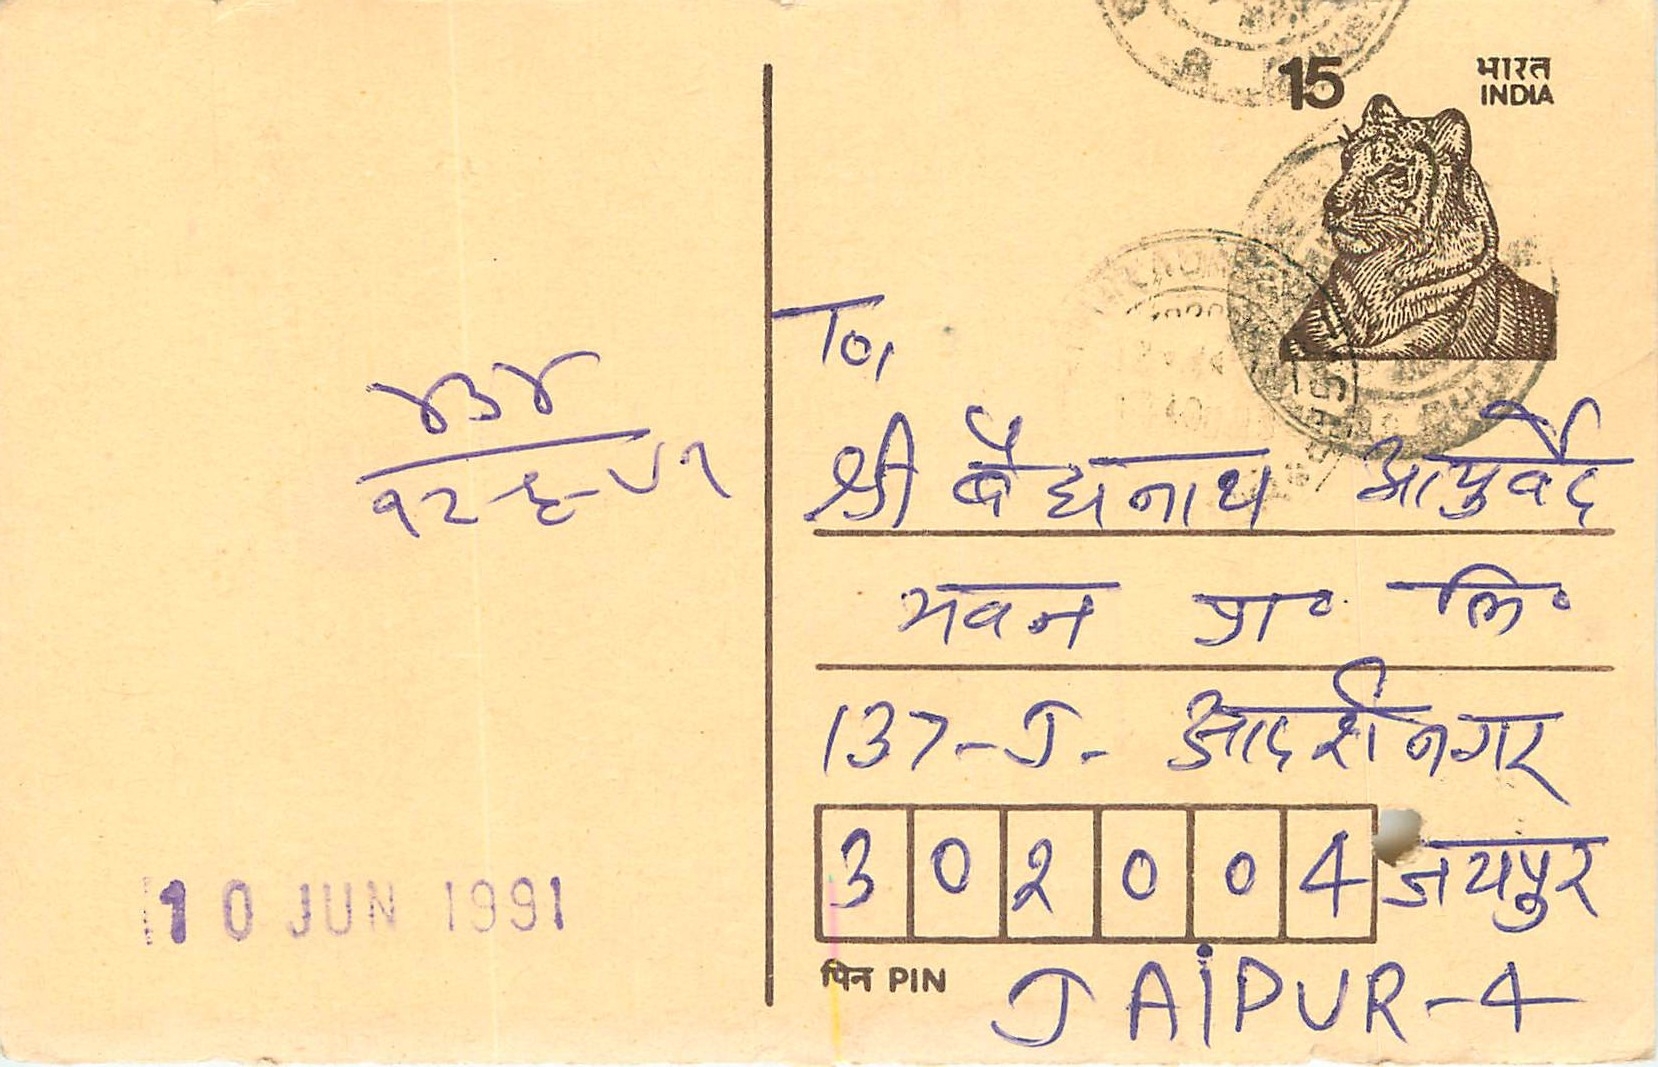 15 भारत
INDIA
To,
श्री बैद्यनाथ आयुर्वेद
भवन प्रा० लि०
137-J- आदर्शनगर
302004 जयपुर
पिन PIN
JAIPUR-4
४३४
१२-६-५१
10 JUN 1991